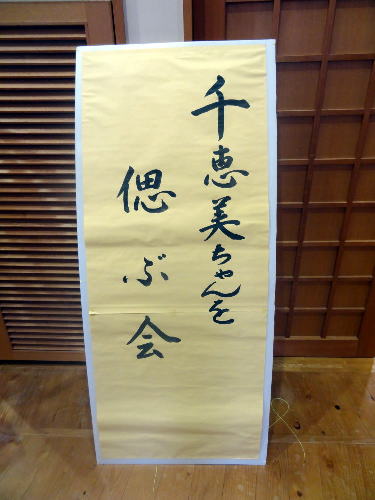 千恵美ちゃんを
偲ぶ会